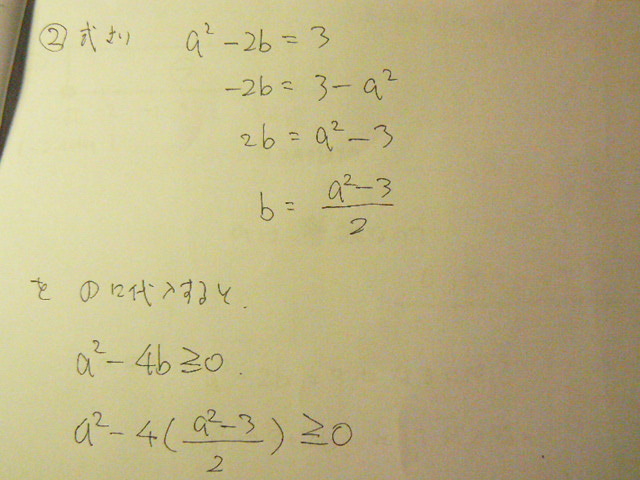 ② 式より a² - 2b = 3
-2b = 3 - a²
2b = a² - 3
b = \frac{a² - 3}{2}
を ①に代入すると.
a² - 4b ≧ 0.
a² - 4(\frac{a² - 3}{2}) ≧ 0